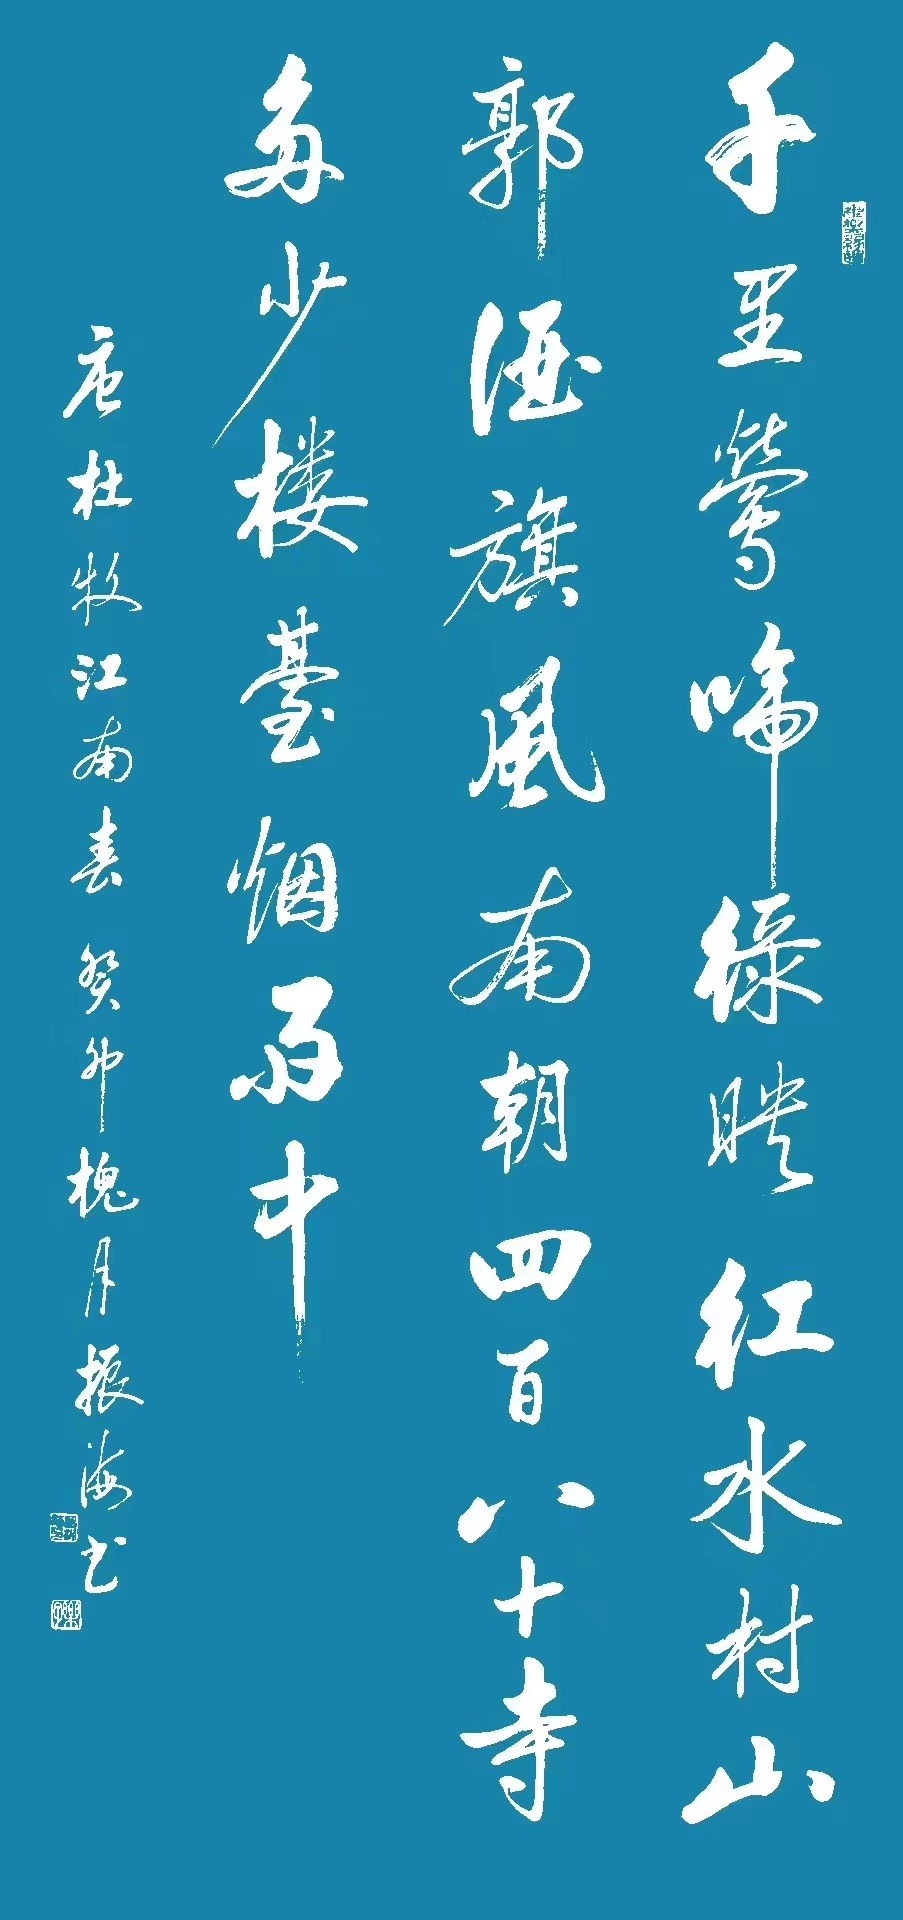 千里莺啼绿映红水村山
郭酒旗風南朝四百八十寺
多少楼臺烟雨中
唐杜牧江南春 癸卯槐月振海书